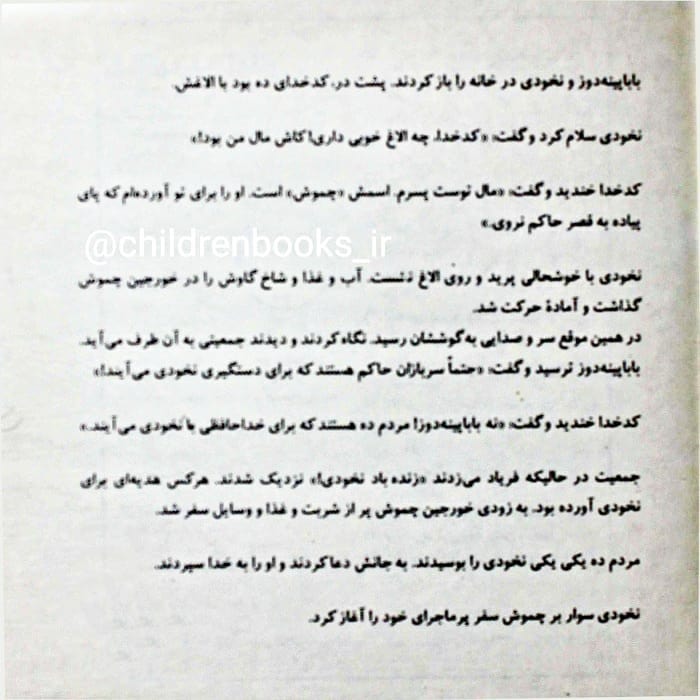 باباپینه‌دوز و نخودی در خانه را باز کردند. پشت در، کدخدای ده بود با الاغش.
نخودی سلام کرد و گفت: «کدخدا، چه الاغ خوبی داری! کاش مال من بود!»
کدخدا خندید و گفت: «مال توست پسرم. اسمش «چموش» است. او را برای تو آورده‌ام که پای
پیاده به قصر حاکم نروی.»
@childrenbooks_ir
نخودی با خوشحالی پرید و روی الاغ نشست. آب و غذا و شاخ گاوش را در خورجین چموش
گذاشت و آمادهٔ حرکت شد.
در همین موقع سر و صدایی به گوششان رسید. نگاه کردند و دیدند جمعیتی به آن طرف می‌آید.
باباپینه‌دوز ترسید و گفت: «حتماً سربازان حاکم هستند که برای دستگیری نخودی می‌آیند!»
کدخدا خندید و گفت: «نه باباپینه‌دوز! مردم ده هستند که برای خداحافظی با نخودی می‌آیند.»
جمعیت در حالیکه فریاد می‌زدند «زنده باد نخودی!» نزدیک شدند. هرکس هدیه‌ای برای
نخودی آورده بود. به زودی خورجین چموش پر از شربت و غذا و وسایل سفر شد.
مردم ده یکی یکی نخودی را بوسیدند. به جانش دعا کردند و او را به خدا سپردند.
نخودی سوار بر چموش سفر پرماجرای خود را آغاز کرد.